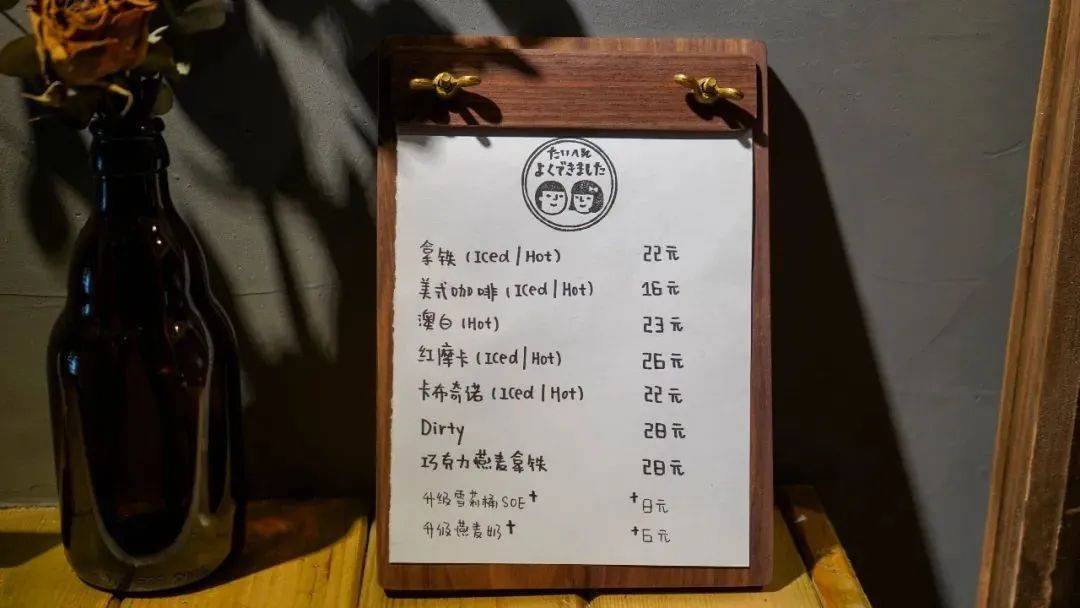 たいへん
よくできました
拿铁 (Iced | Hot) 22元
美式咖啡 (Iced | Hot) 16元
澳白 (Hot) 23元
红摩卡 (Iced | Hot) 26元
卡布奇诺 (Iced | Hot) 22元
Dirty 28元
巧克力燕麦拿铁 28元
升级雪莉桶SOE+ +8元
升级燕麦奶+ +6元